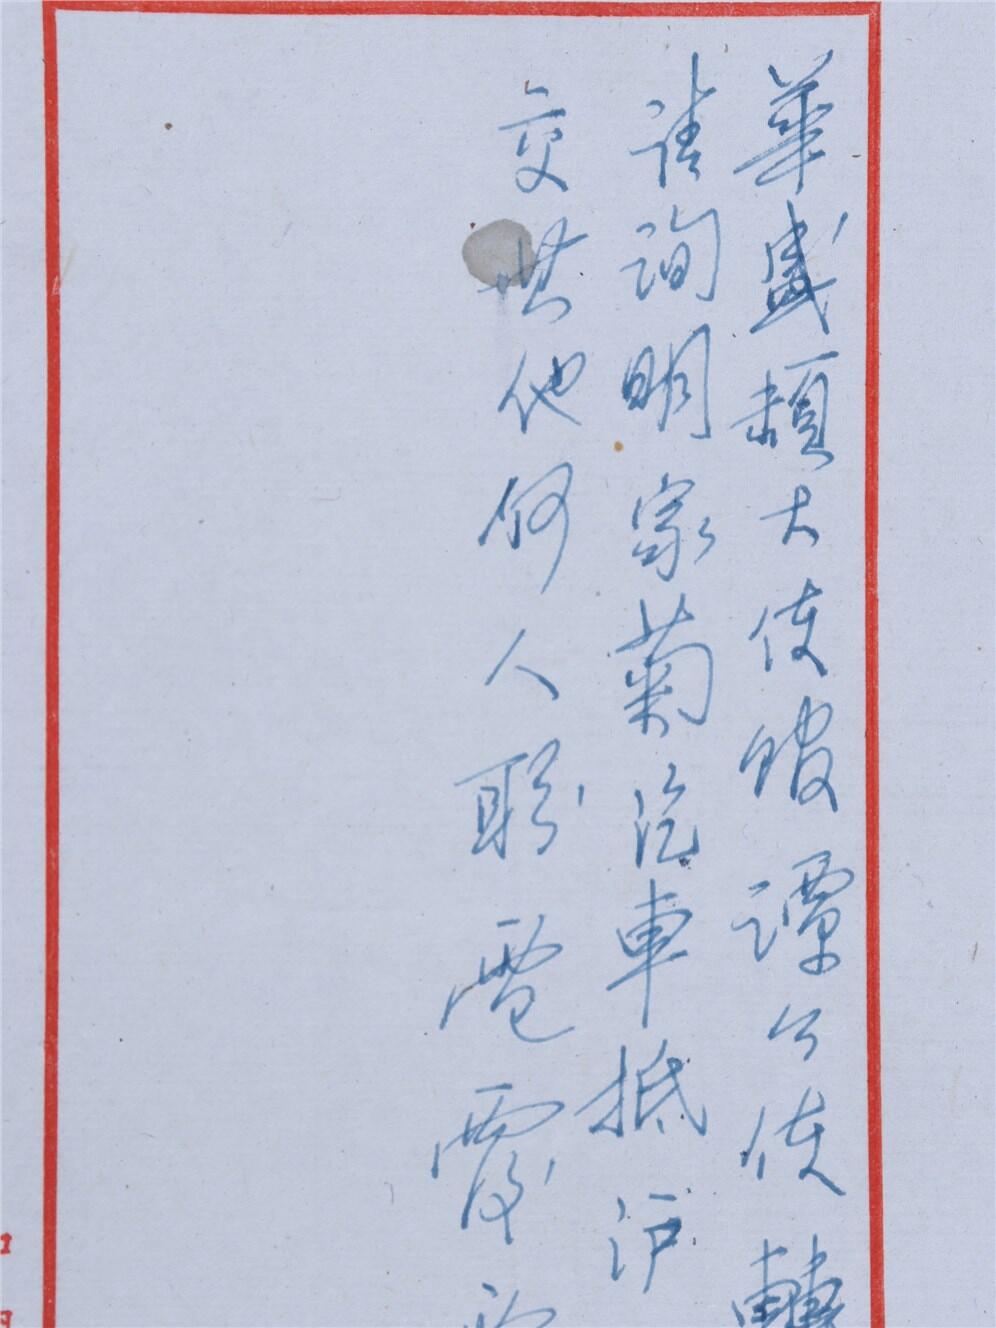 華盛頓大使館譚公使轉
請詢明家菊汽車抵沪
交其他何人聡電覆